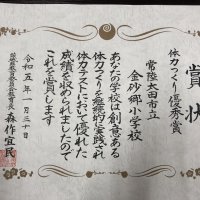 賞状
体力つくり優秀賞
常陸太田市立
金砂郷小学校
あなたの学校は創意ある
体力つくりを継続的に実践され
体力テストにおいて優れた
成績を収められましたので
これを賞します
令和五年一月三十日
茨城県教育委員会教育長 森作宜民